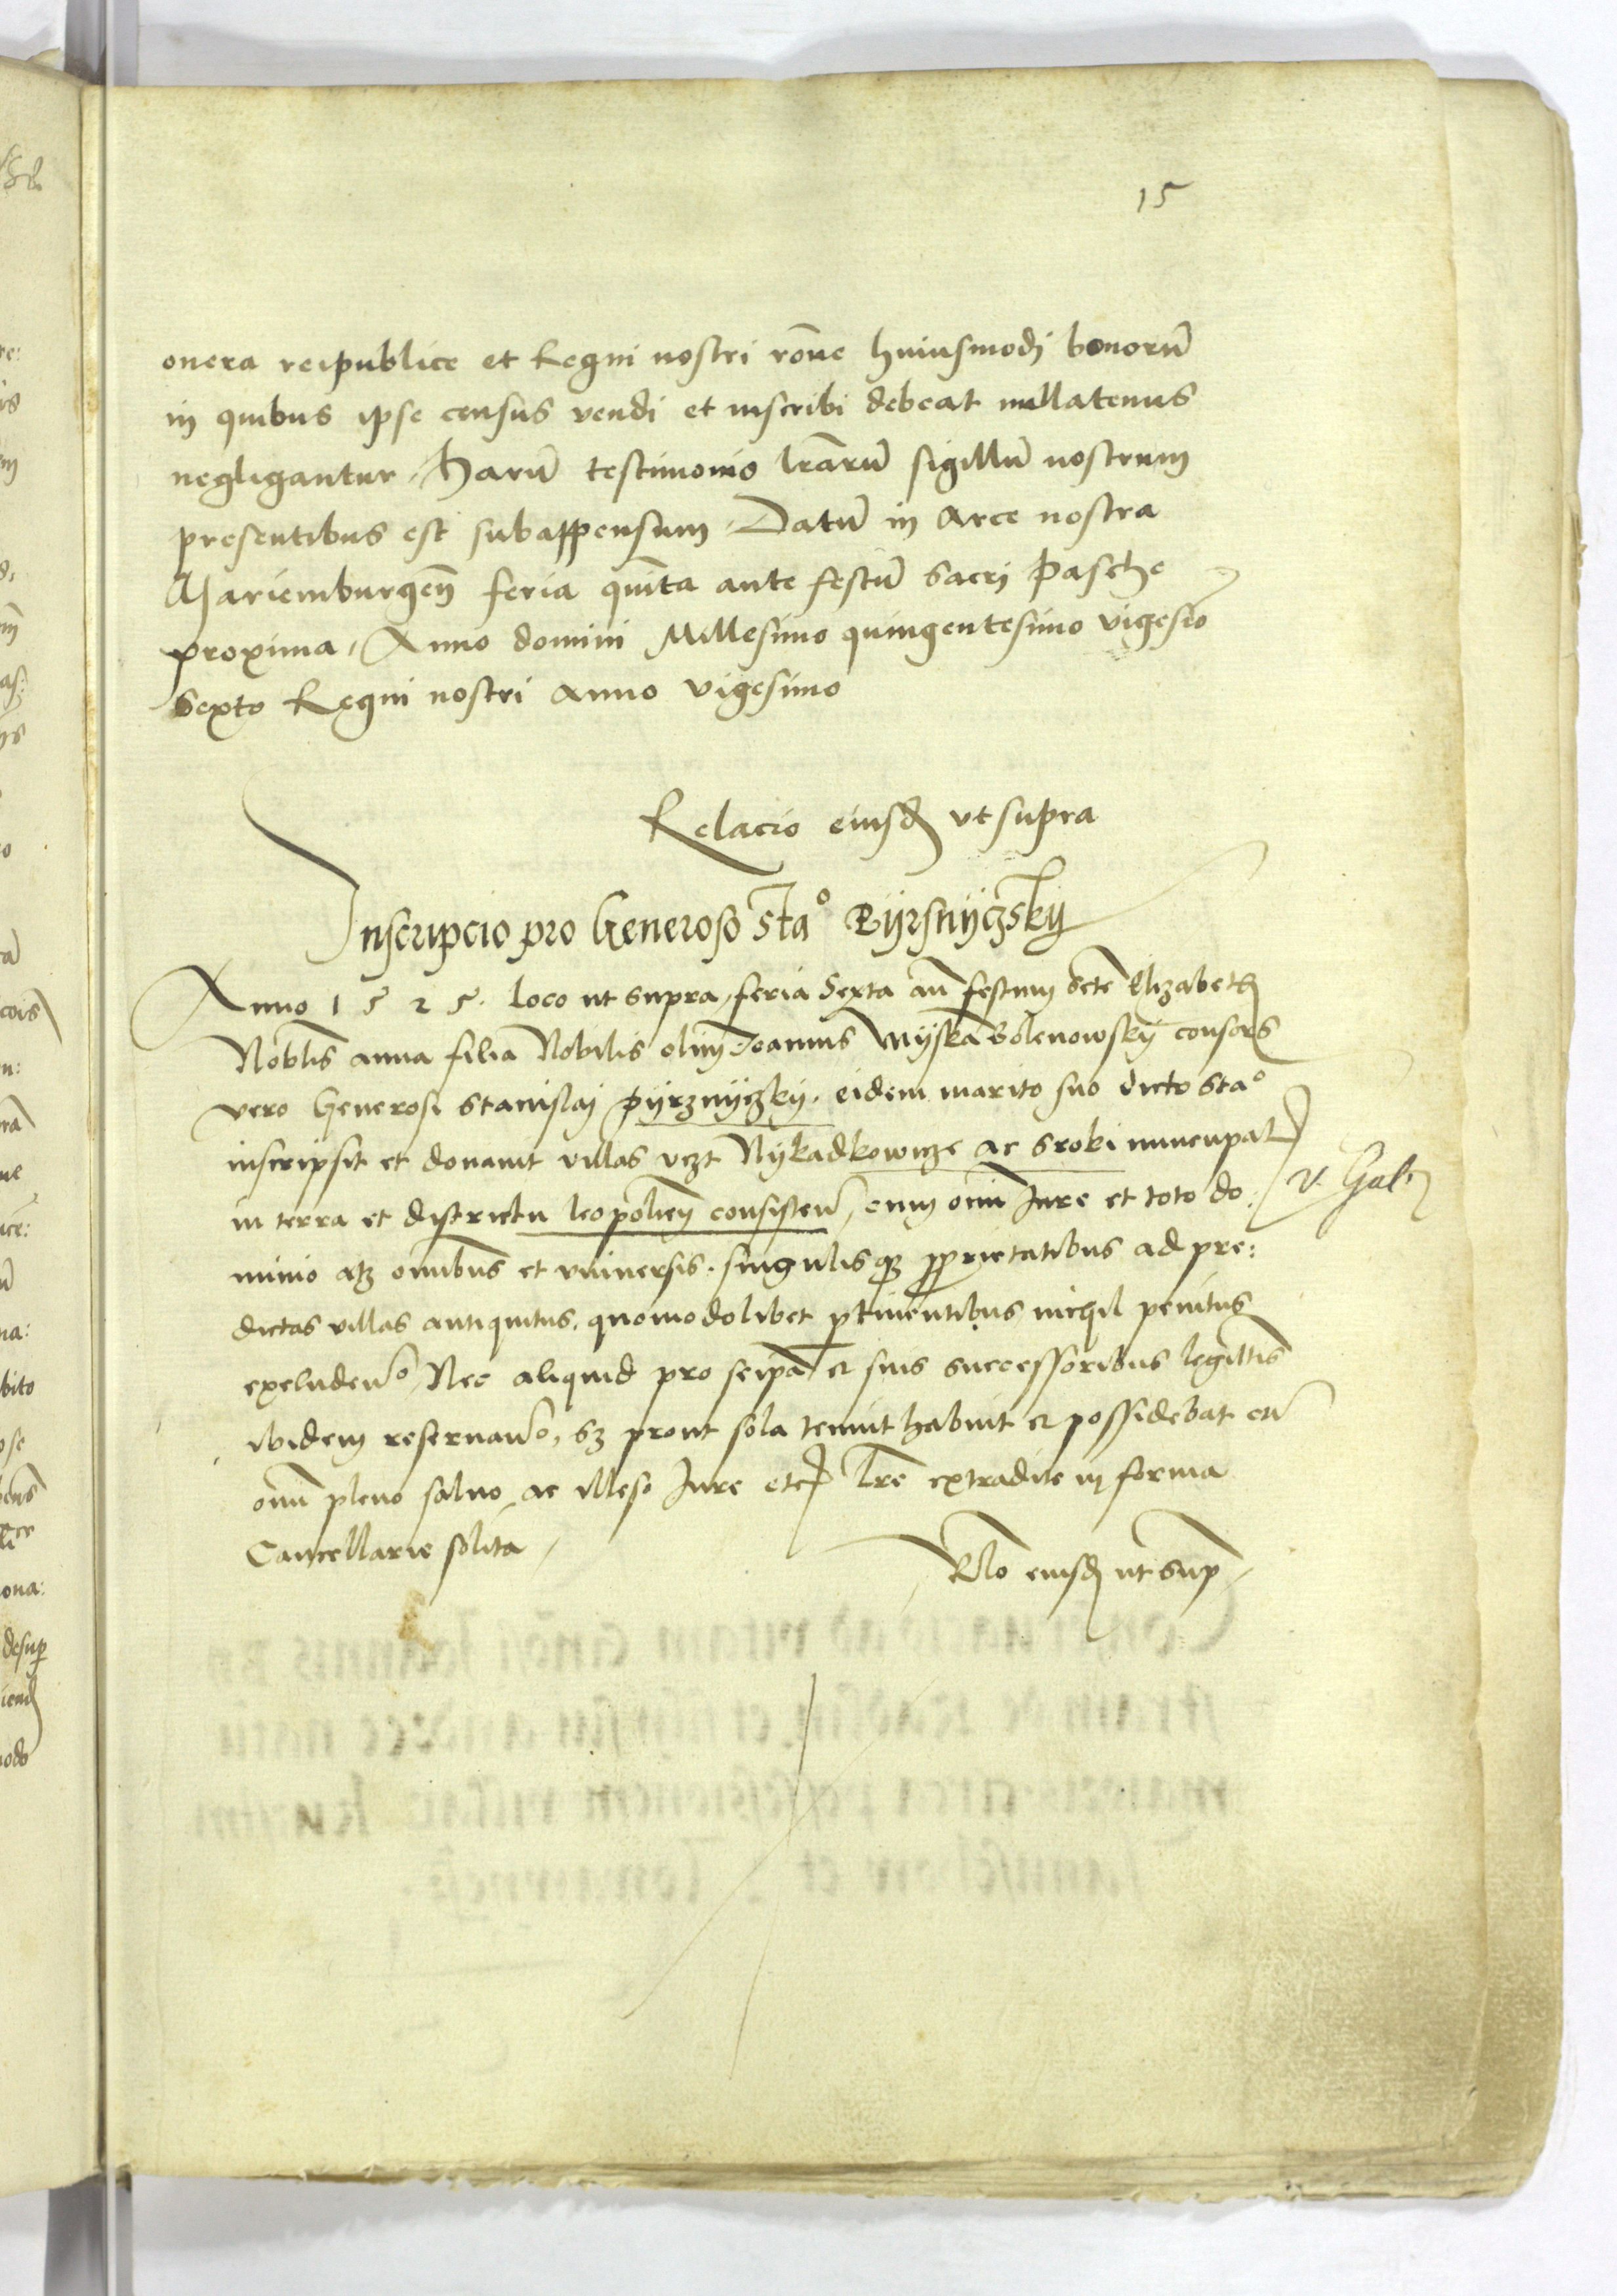 15
onera reipublice et Regni nostri rōne huiusmodj bonorū
in quibus ipse census vendi et inscribi debeat nullatenus
negligantur, Harū testimonio lrārū sigillū nostrum
presentibus est subappensum, Datū in Arce nostra
Mariemburgeñ feria quīta ante festū sacrj Pasche
proxima, Anno domini Millesimo quingentesimo vigesīo
sexto Regni nostri anno vigesimo
Relacio eiusd ut supra
Inscripcio pro Generoso Sta° Pyrsnyczsky
Anno 1525. loco ut supra, feria Sexta añ festum scte Elizabeth
Nobilis anna filia Nobilis olim Joannis Myska Bolenowsky consors
vero Generosi Stanislaj pyrznyczky. eidem marito suo dicto Sta°
inscripsit et donauit villas vczt Nykadkowicze ac sroki nuncupat
in terra et districtu leopolieñ consisteñ, cum oīni Jure et toto do:
V. Gab.
minio atq oīnibus et vniuersis. singulisq3 pprietatibus ad pre:
dictas villas antiquitus. quomodolibet ptinentibus nichil penitus
excludeñ°, Nec aliquid pro seipa et suis successoribus legittīs
ibidem reseruañ°, s3 prout sola tenuit habuit et possidebat cū
oīni pleno saluo ac illeso Jure etc lrē extradite in forma
Cancellarie solita,
Rlō eiusd ut sup